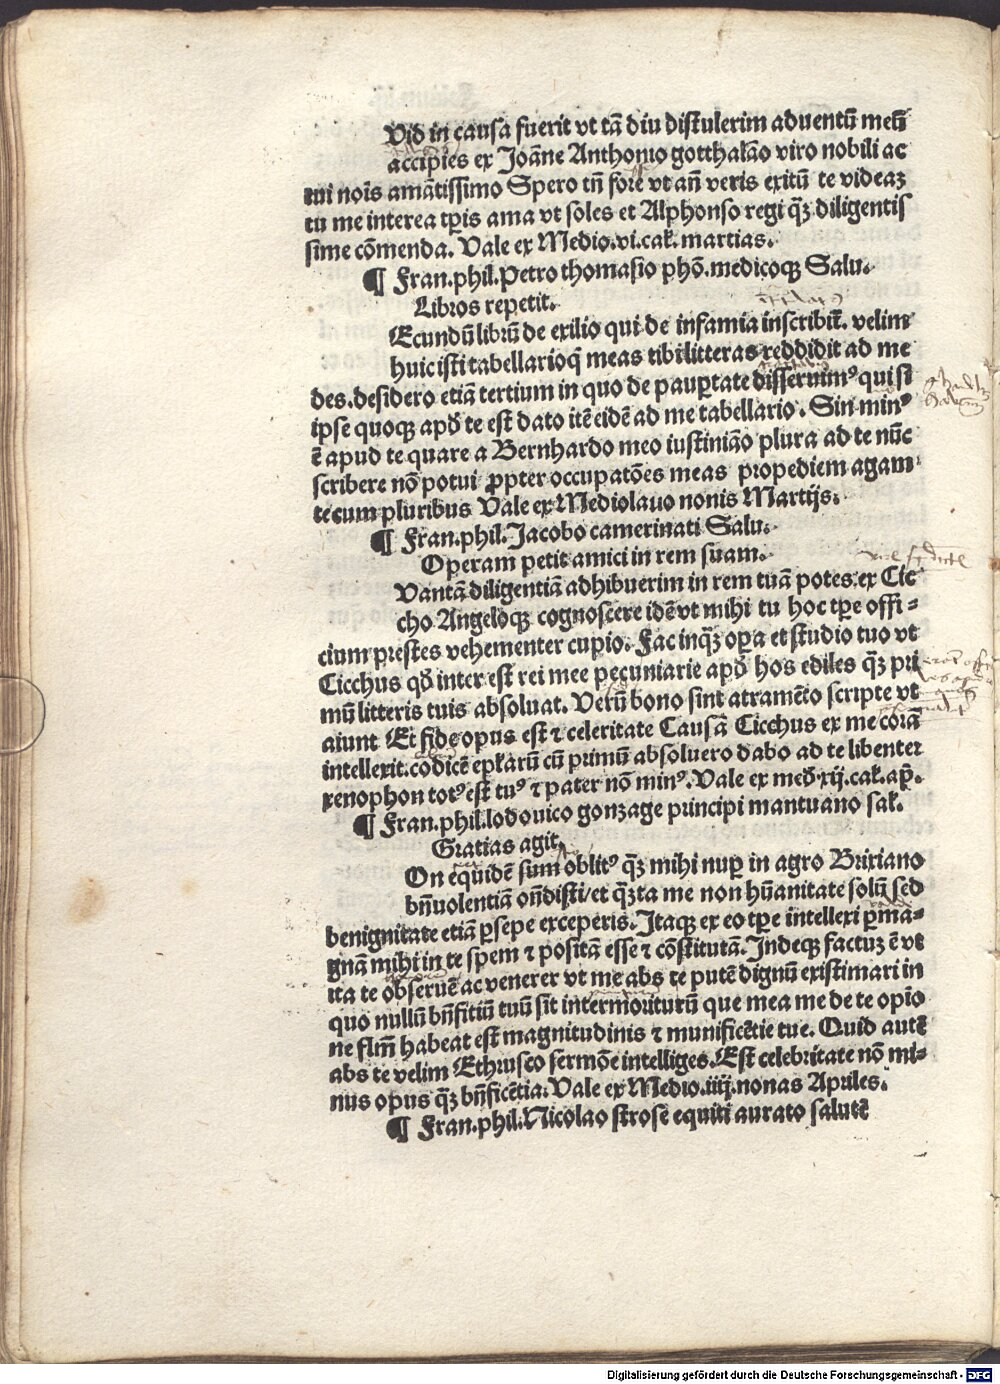 Vid in causa fuerit vt tã diu distulerim aduentũ meũ
accipies ex Joãne Anthonio gotthalão viro nobili ac
tui noīs amãtissimo Spero tñ fore vt añ veris exitũ te videaz
tu me interea tp̄is ama vt soles et Alphonso regi qʒ diligentis
sime cõmenda. Vale ex Medio.vi.cal. martias.
¶ Fran.phil.Petro thomasio phõ.medicoqʒ Salu.
Libros repetit.
Ecundũ librũ de exilio qui de infamia inscribit̃. velim
huic isti tabellario qʒ meas tibi litteras reddidit ad me
des.desidero etiã tertium in quo de paup̱tate disseruimꝰ qui si
ipse quoqʒ apd̄ te est dato itẽ eidẽ ad me tabellario. Sin minꝰ
ẽ apud te quare a Bernhardo meo iustinião plura ad te nũc
scribere nõ potui ꝓpter occupatões meas propediem agam
tecum pluribus Vale ex Mediolauo nonis Martijs.
¶ Fran.phil.Jacobo camerinati Salu.
Operam petit amici in rem suam.
Vantã diligentiã adhibuerim in rem tuã potes.ex Cic
cho Angeloqʒ cognoscere idẽ vt mihi tu hoc tp̄e offi⸗
cium prestes vehementer cupio. Fac inqʒ̃ op̱a et studio tuo vt
Cicchus qd̄ inter est rei mee pecuniarie apd̄ hos ediles qʒ̃ pri
mũ litteris tuis absoluat. Verũ bono sint atramẽto scripte vt
aiunt Et fide opus est ⁊ celeritate Causã Cicchus ex me corã
intellexit.codicẽ ep̄larũ cũ primũ absoluero dabo ad te libenter
xenophon totꝰ est tuꝰ ⁊ pater nõ minꝰ. Vale ex med̄.xij.cal.ap̱.
¶ Fran.phil.lodouico gonzage principi mantuano sal.
Gratias agit.
On equidẽ sum oblitꝰ qʒ̃ mihi nup̱ in agro Brixiano
bñuolentiã oñdisti/et qʒ̃ta me non hũanitate solũ sed
benignitate etiã p̱sepe exceperis. Itaqʒ ex eo tp̄e intellexi p̱ma⸗
gnãm mihi in te spem ⁊ positã esse ⁊ cõstitutã. Indeqʒ factuz ẽ vt
ita te obseruẽ ac venerer vt me abs te putẽ dignũ existimari in
quo nullũ bñfitiũ tuũ sit intermoriturũ que mea me de te opiõ
ne flm̃ habeat est magnitudinis ⁊ munificẽtie tue. Quid autẽ
abs te velim Ethrusco sermõe intelliges.Est celebritate nõ mi⸗
nus opus qʒ̃ bñficẽtia. Vale ex Medio.iiij.nonas Apriles.
¶ Fran.phil.Nicolao strose equiti aurato salutẽ
Digitalisierung gefördert durch die Deutsche Forschungsgemeinschaft - DFG